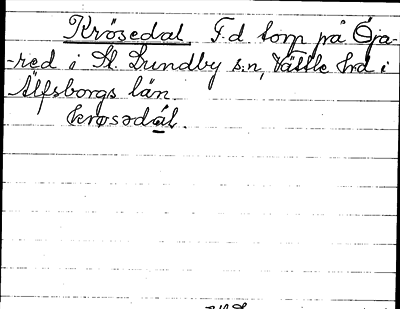 Krösedal F.d torp på Öja-
-red i St. Lundby s:n, Vättle hrd i
Älfsborgs län
krøsədál.